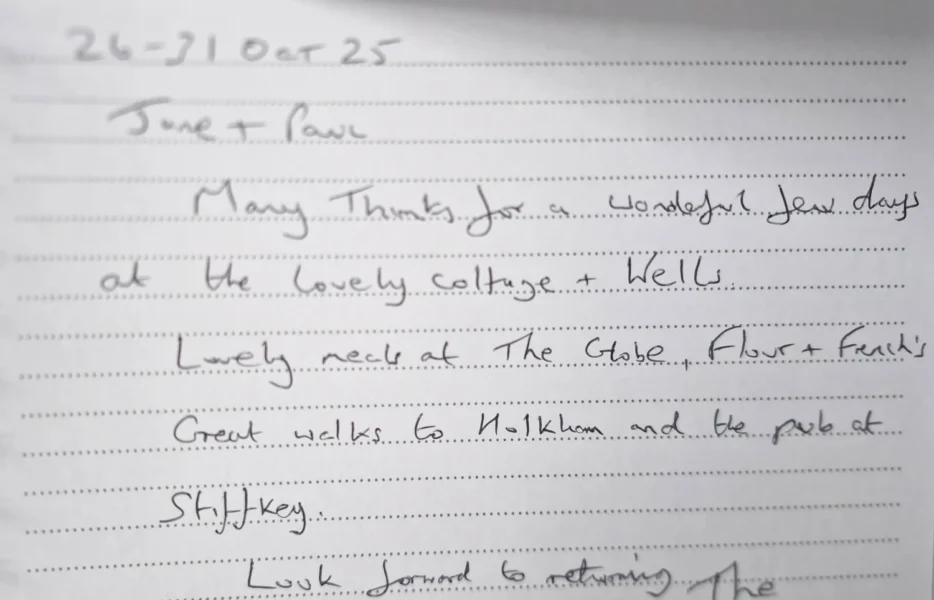 26-31 Oct 25
June + Paul
Many Thanks for a wonderful few days
at the lovely cottage + Wells.
Lovely meals at The Globe, Flour + French's
Great walks to Holkham and the pub at
Stiffkey.
Look forward to returning The